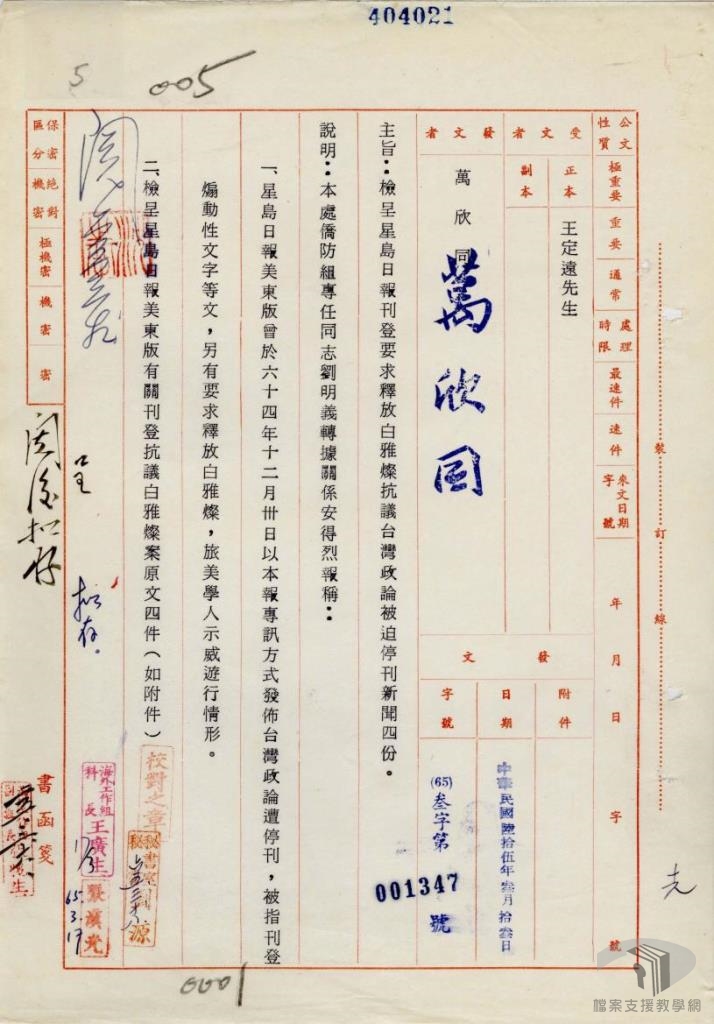 404021
005
公文性質
極重要
重要
通常
處理時限
最速件
速件
來文日期字號
年
月
日
字
號
裝
訂
線
受文者
正本
副本
王定遠先生
發文者
萬欣同
萬欣同
發文
附件
日期
字號
中華民國陸拾伍年叁月拾叁日
(65)叁字第
001347
號
主旨：檢呈星島日報刊登要求釋放白雅燦抗議台灣政論被迫停刊新聞四份。
說明：本處僑防組專任同志劉明義轉據關係安得烈報稱：
一、星島日報美東版曾於六十四年十二月卅日以本報專訊方式發佈台灣政論遭停刊，被指刊登
煽動性文字等文，另有要求釋放白雅燦，旅美學人示威遊行情形。
二、檢呈星島日報美東版有關刊登抗議白雅燦案原文四件（如附件）
保密區分
絕對機密
極機密
機密
密
呈
擬存。
閱後擬存
校對之章
海外工作組
科長王廣生
張漢光
65.3.17
書函箋
0001
檔案支援教學網